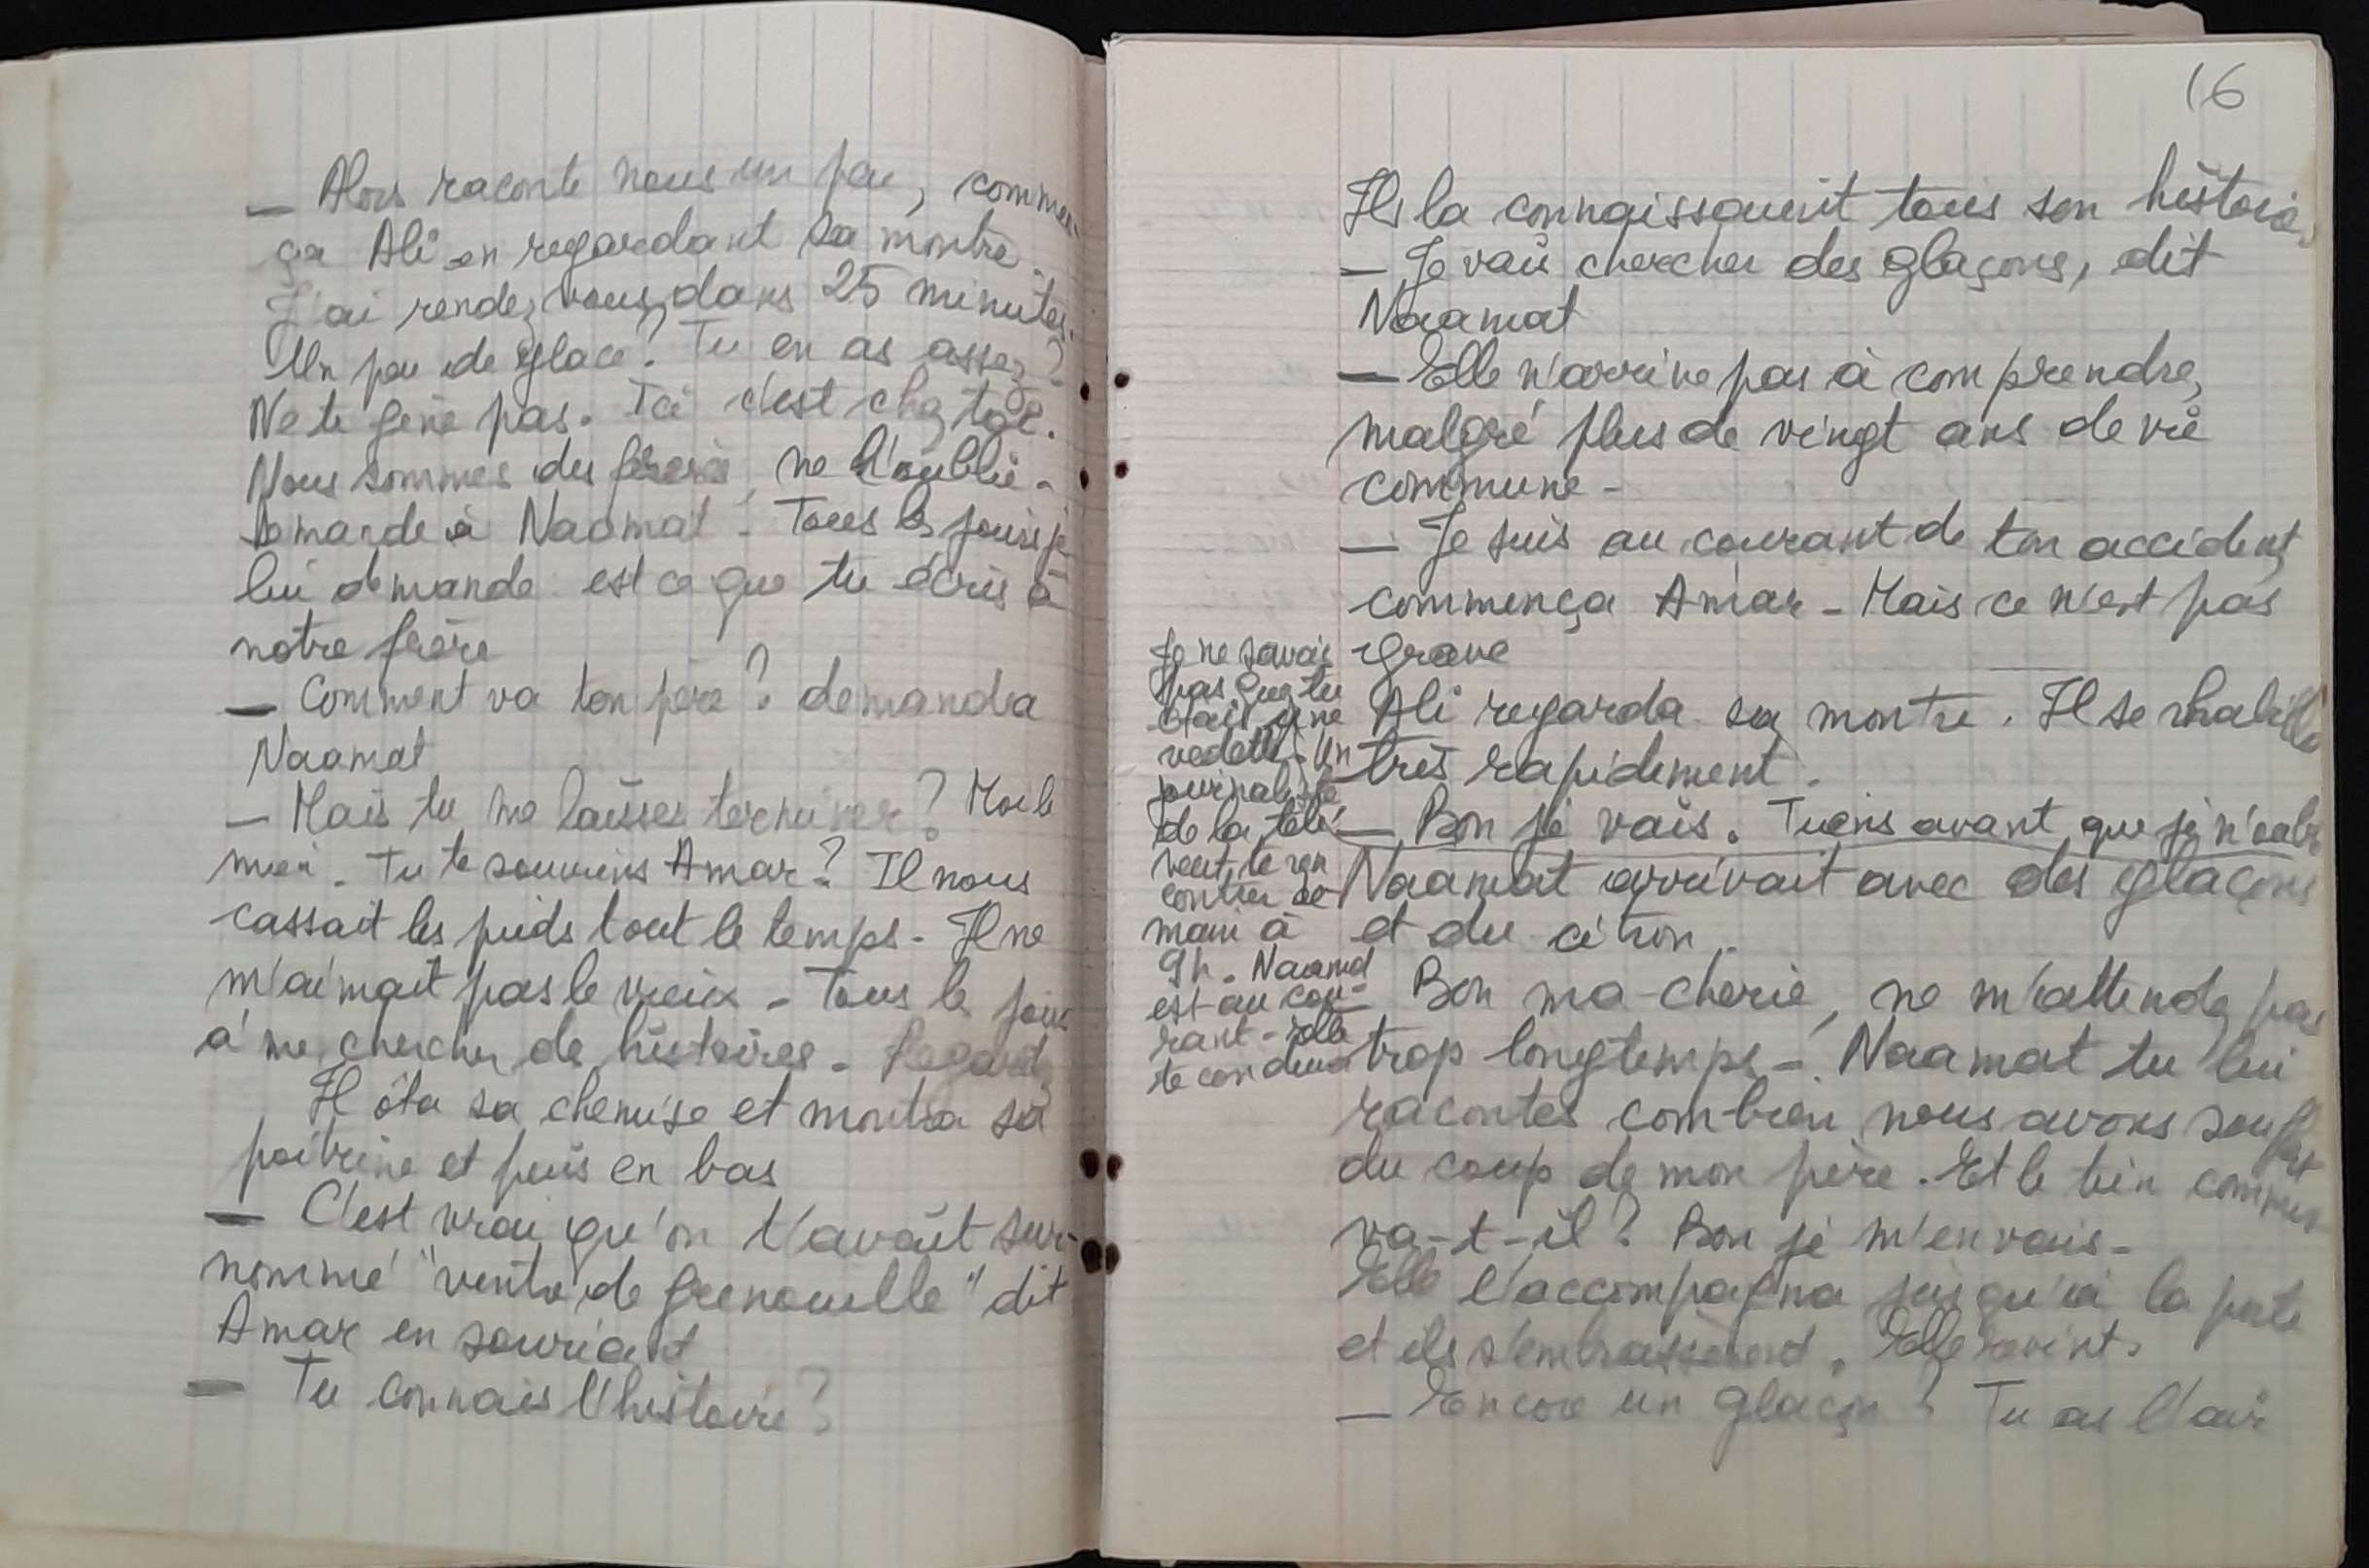 — Alors raconte nous un peu, commen-
ça Ali en regardant sa montre.
J'ai rendez vous dans 25 minutes.
Un peu de glace? Tu en as assez?
Ne te gêne pas. Ici c'est chez toi.
Nous sommes des frères, ne l'oublie.
Demande à Naamat. Tous les jours je
lui demande est ce que tu écris à
notre frère
— Comment va ton père? demanda
Naamat
— Mais tu me laisses terminer? Moi le
mien. Tu te souviens Amar? Il nous
cassait les pieds tout le temps. Il ne
m'aimait pas le vieux. Tous les jours
à me chercher de histoires. Regarde
Il ôta sa chemise et montra sa
poitrine et puis en bas
— C'est vrai qu'on t'avait sur-
nommé "ventre de grenouille" dit
Amar en souriant
— Tu connais l'histoire?
16
Ils la connaissaient tous son histoire.
— Je vais chercher des glaçons, dit
Naamat
— Elle n'arrive pas à comprendre,
malgré plus de vingt ans de vie
commune.
— Je suis au courant de ton accident,
commença Amar. Mais ce n'est pas
grave
Ali regarda sa montre. Il se rhabilla
très rapidement.
— Bon je vais. Tiens avant que je n'oublie
Je ne savais
pas que tu
étais une
vedette. Un
journaliste
de la télé
veut te ren
contrer de
main à
9h. Naamat
est au cou-
rant. Elle
te conduira
Naamat arrivait avec des glaçons
et du citron.
Bon ma cherie, ne m'attendez pas
trop longtemps. Naamat tu lui
racontes combien nous avons souffert
du coup de mon père. Et le tien comment
va-t-il? Bon je m'en vais.
Elle l'accompagna jusqu'à la porte
et ils s'embrassèrent. Elle revint.
— Encore un glaçon? Tu as l'air